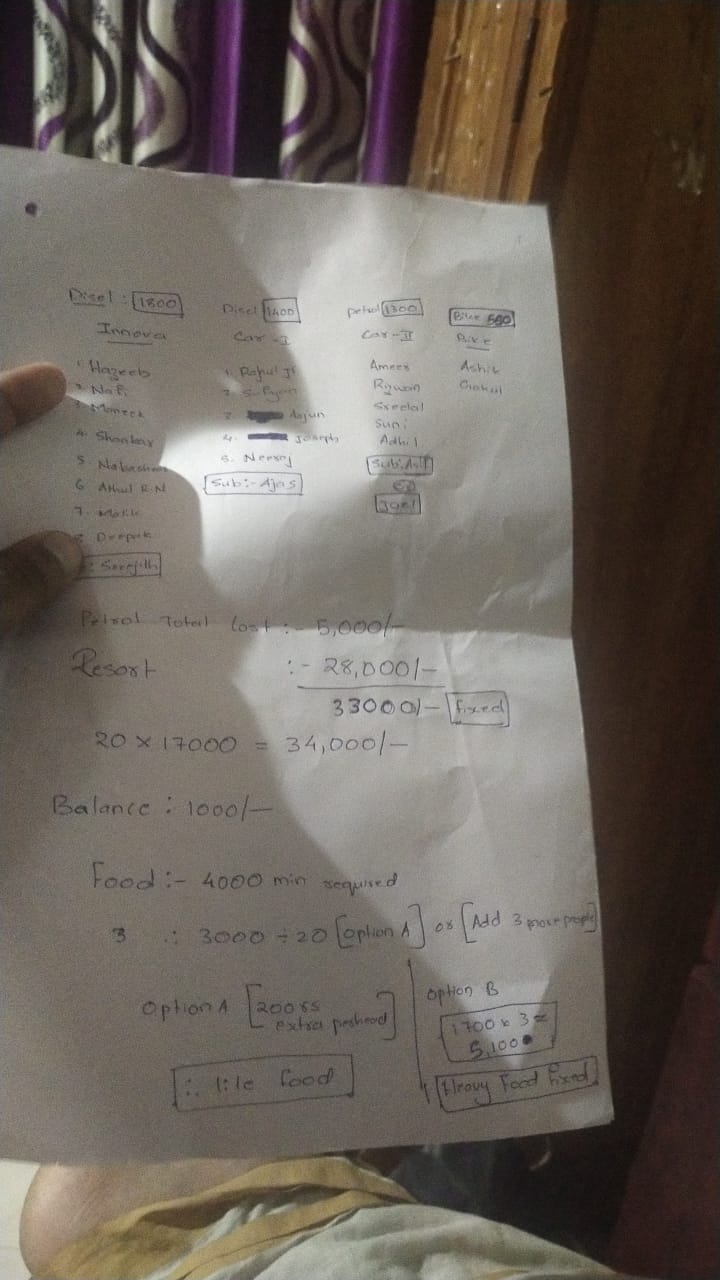 Disel : 1800
Innova
1. Hazeeb
2. Nafi
3.
4. Shankar
5
6 Athul R.N
7. Malik
Deepak
Sreejith
Disel 1400
Car-I
1. Rahul Js
2. Sufyan
3. Arjun
4. Joseph
5. Neeraj
Sub:- Ajas
petrol 1300
Car-II
Ameer
Riywan
Sreelal
Suni
Adhil
Sub:
or
Joel
Bike 500
Bike
Ashik
Gokul
Petrol Total Cost :- 5,000/-
Resort :- 28,000/-
33000/- fixed
20 x 17000 = 34,000/-
Balance : 1000/-
Food :- 4000 min required
3 ∴ 3000 ÷ 20 [Option A] or [Add 3 more people]
Option A [200rs extra perhead]
∴ lite food
Option B
1700 x 3 =
5,100
Heavy Food fixed